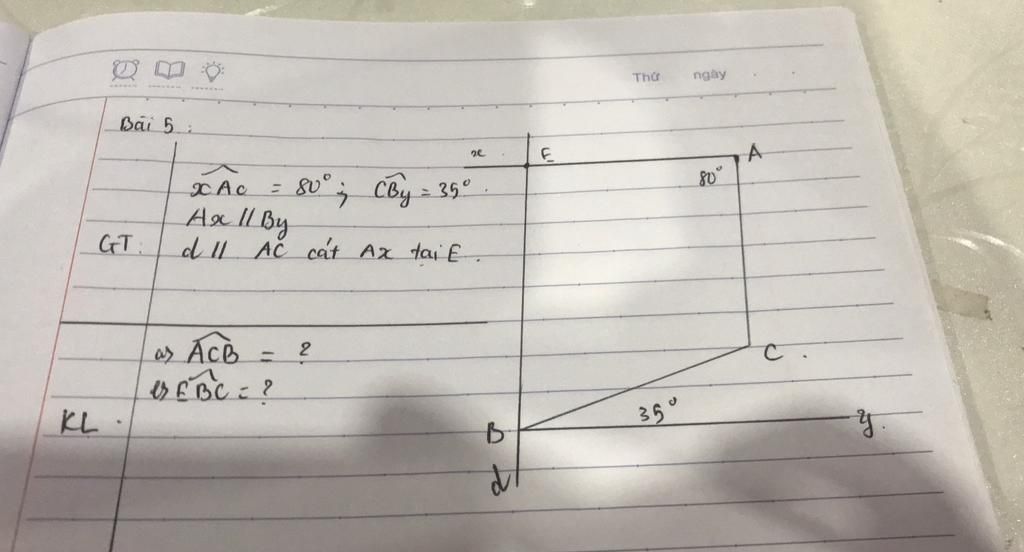 Thứ ngày
Bài 5:
xAc = 80° ; CBy = 35°.
Ax // By
GT: d // AC cắt Ax tại E.
a) ACB = ?
b) EBC = ?
KL.
x
E
A
80°
C.
35°
B
y.
d